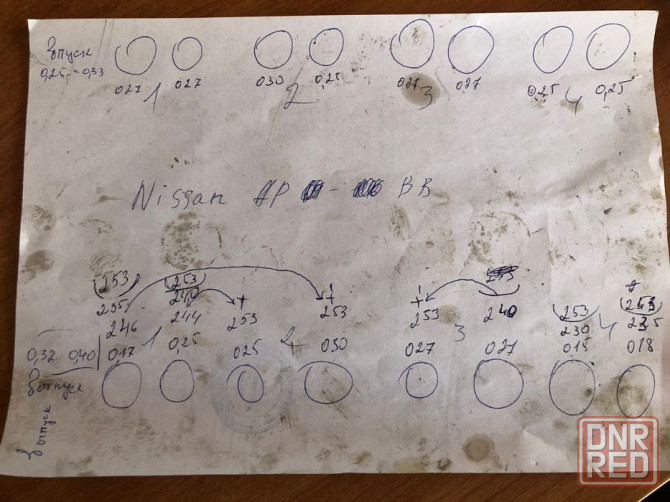 Впуск
0,25-0,33
027 027 030 0,25 027 027 0,25 0,25
1 2 3 4
Nissan AP BB
253 253 253
235 240 253 253 253 240 253 253
246 244 230 235
0,32 0,40 017 0,25 025 030 027 027 015 018
1 2 3 4
Выпуск
Выпуск
DNR
RED